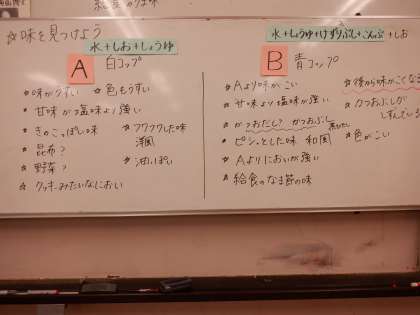 ☆味を見つけよう
水+しお+しょうゆ
A 白コップ
☆味がうすい
☆色もうすい
☆甘味が塩味より強い
☆きのこっぽい味
☆フワフワした味
洋風
☆昆布?
☆油っぽい
☆野菜?
☆クッキーみたいなにおい
水+しょうゆ+けずりぶし+こんぶ+しお
B 青コップ
☆Aより味がこい
☆後から味がこくなる
☆甘味より塩味が強い
☆かつおぶしが
☆かつおだし? かつおぶし
☆ピシッとした味 和風
☆色がこい
☆Aよりにおいが強い
☆給食のなま節の味